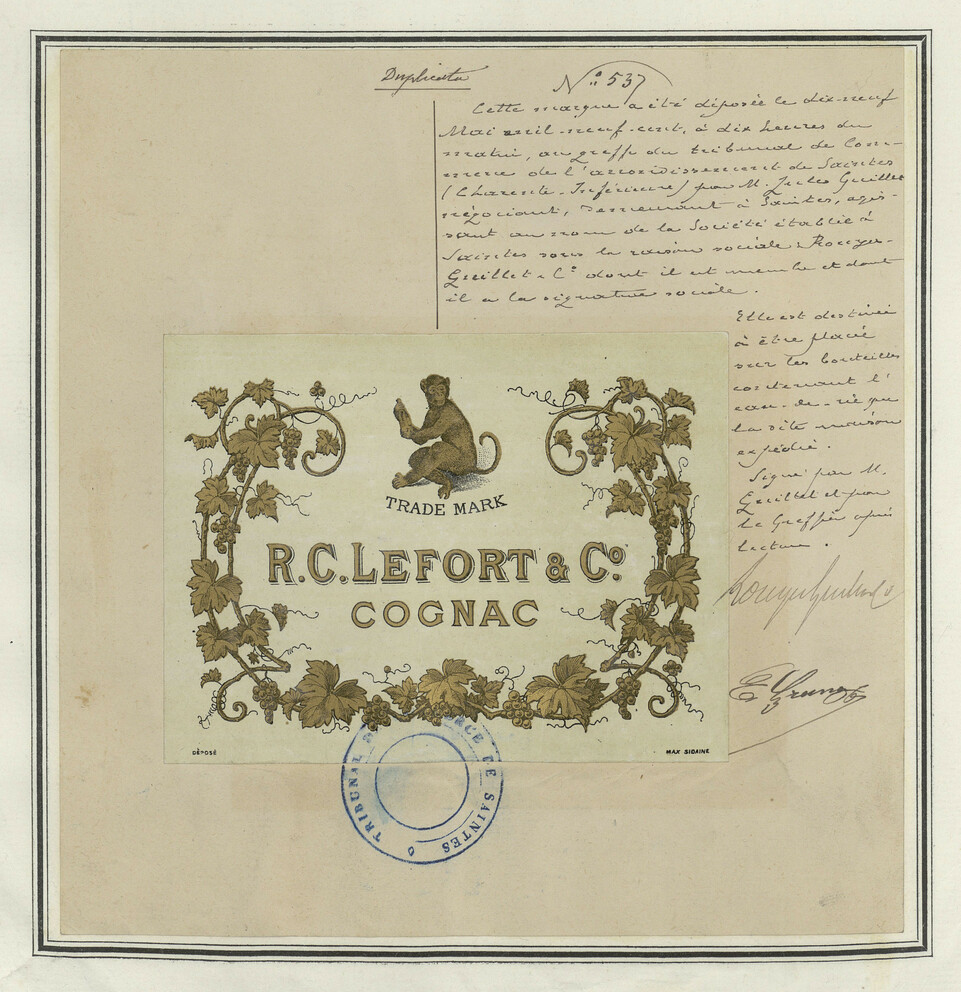 Duplicata
N° 537
Cette marque a été déposée le dix-neuf
Mai mil-neuf-cent, à dix heures du
matin, au greffe du tribunal de Com-
merce de l'arrondissement de Saintes
(Charente-Inférieure) par M. Jules Guillet
négociant, demeurant à Saintes, agis-
sant au nom de la Société établie à
Saintes sous la raison sociale : Rouyer-
Guillet & C° dont il est membre et dont
il a la signature sociale.
Elle est destinée
à être placée
sur les bouteilles
contenant l'
eau-de-vie que
la dite maison
expédie.
Signé par M.
Guillet et par
le Greffier après
lecture.
Rouyer Guillet & C°
TRADE MARK
R.C. LEFORT & C°
COGNAC
DÉPOSÉ
MAX SIDAINE
TRIBUNAL DE COMMERCE DE SAINTES